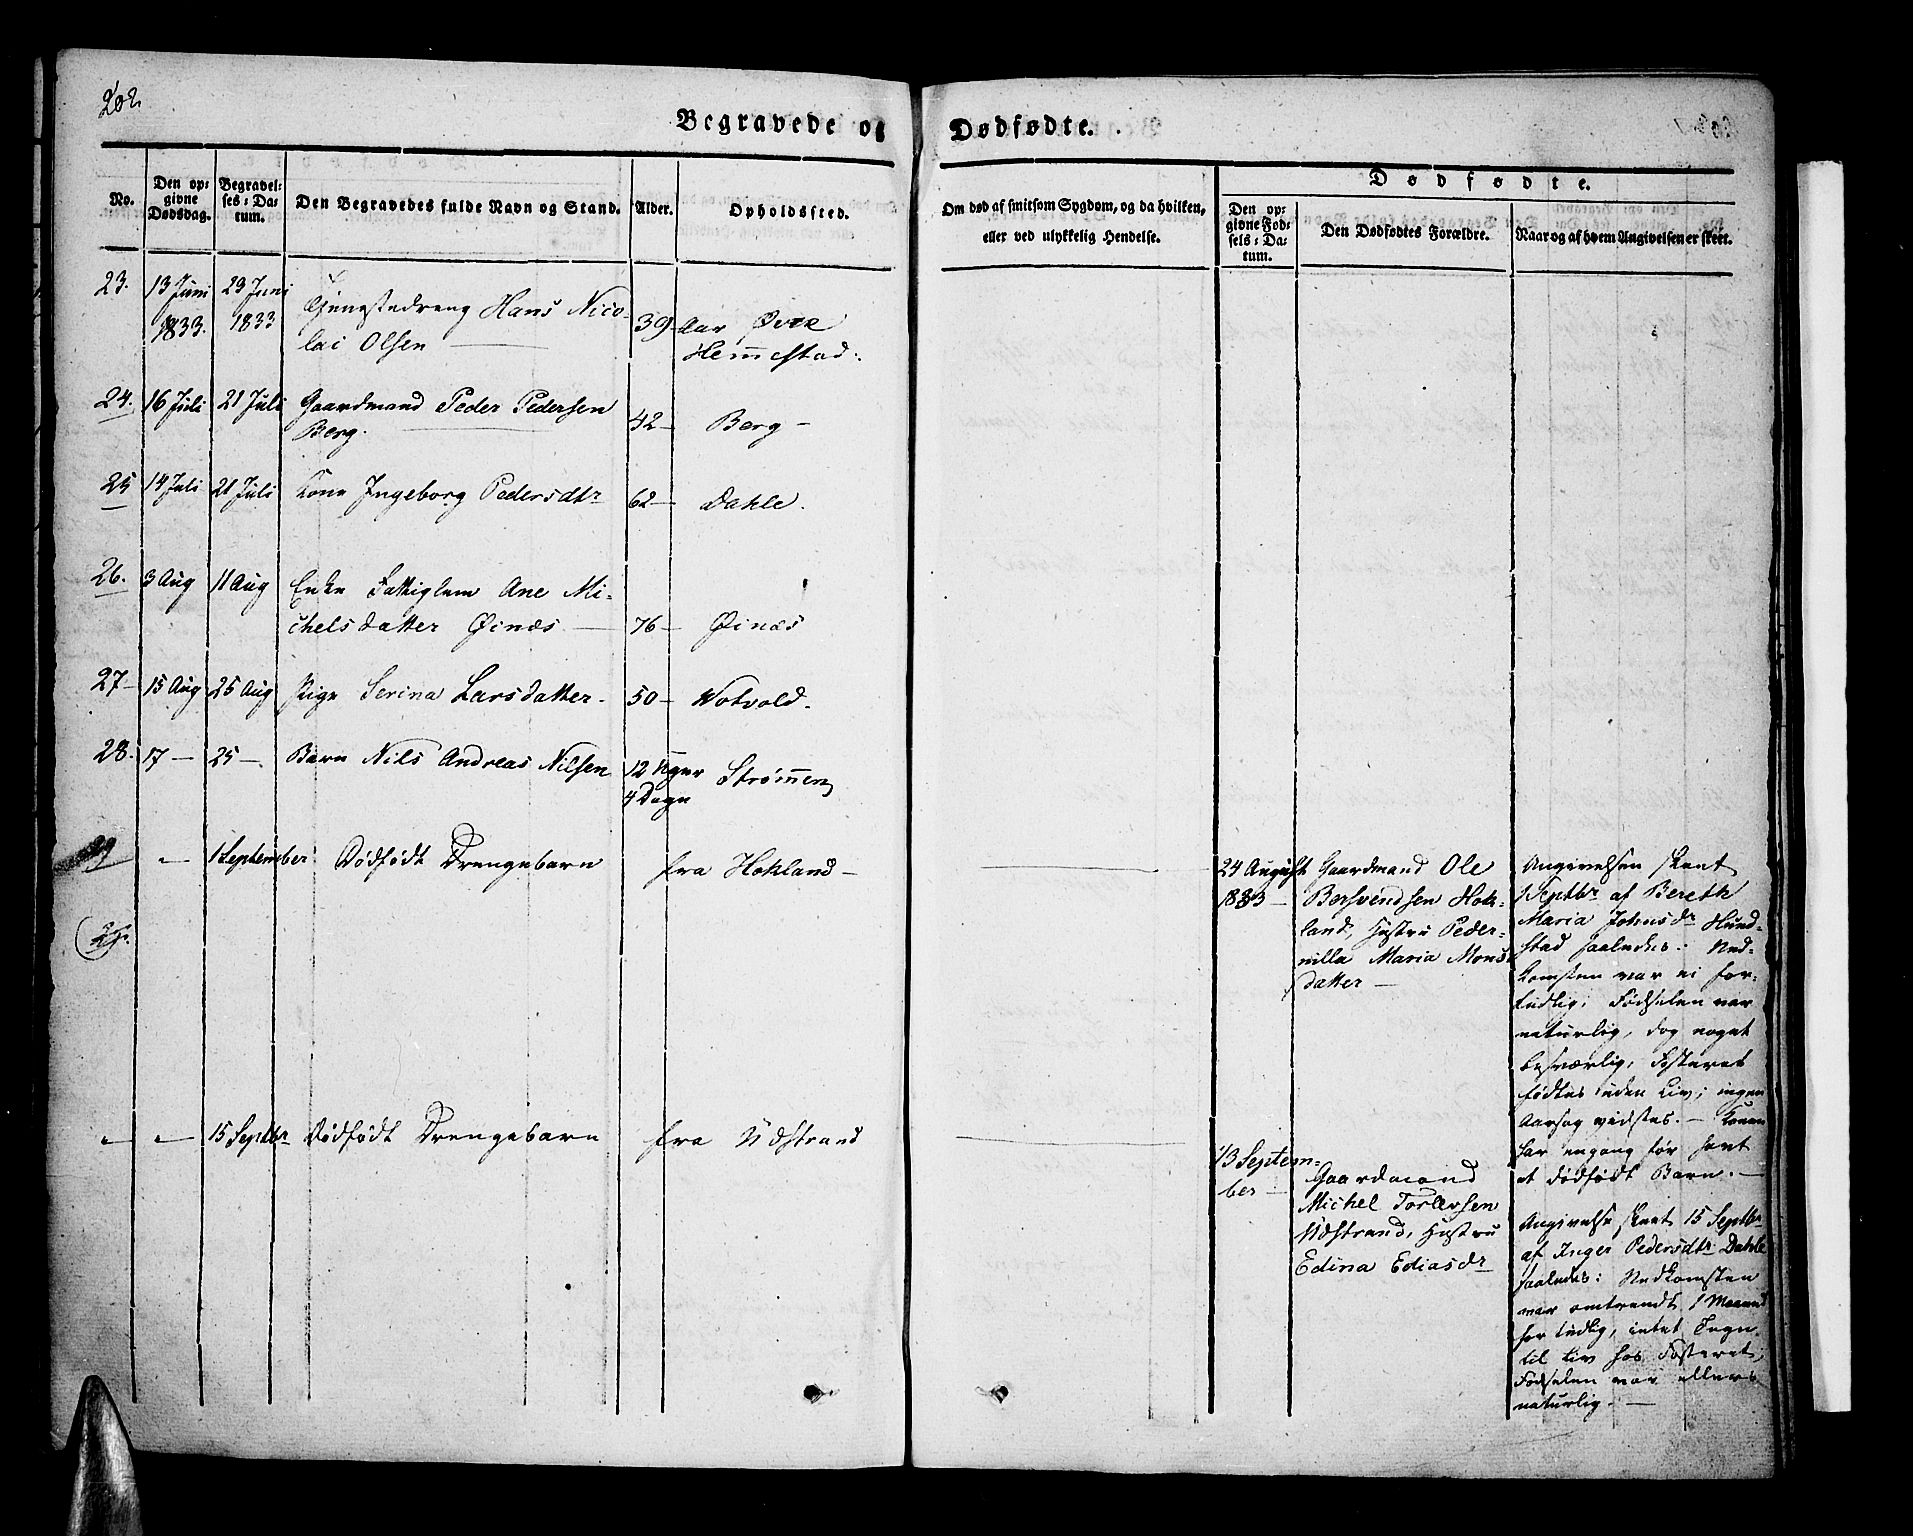 202
Begravede og Dødfødte.
No.
Den op-
givne
Dødsdag.
Begravel-
ses-Da-
tum.
Den Begravedes fulde Navn og Stand.
Alder.
Opholdssted.
Om død af smitsom Sygdom, og da hvilken,
eller ved ulykkelig Hendelse.
Dødfødte.
Den op-
givne Fød-
sels-Da-
tum.
Den Dødfødtes Forældre.
Naar og af hvem Angivelsen er skeet.
23. 13 Juni 23 Juni
1833. 1833 Tjenestedreng Hans Nico-
lai Olsen 39 Aar Øvre
Hem̅estad.
24. 16 Juli 21 Juli Gaardmand Peder Pedersen
Berg. 42 — Berg —
25 14 Juli 21 Juli Kone Ingeborg Pedersdtr 62 — Dahle.
26. 3 Aug 11 Aug Enke Fattiglem Ane Mi-
chelsdatter Øinæs — 76 — Øinæs
27 — 15 Aug 25 Aug Pige Serina Larsdatter. 50 — Votvold.
28. 17 — 25 — Barn Nils Andreas Nilsen 12 Uger Strøm̅en
4 Dage
29 „ 1 September Dødfødt Drengebarn fra Hokland —
24 August
1833 —
Gaardmand Ole
Bersvendsen Hok-
land, Hustru Peder-
nilla Maria Mons
datter —
Angivelsen skeet
1 Septbr af Bereth
Maria Johnsdr Hund-
stad saaledes: Ned-
komsten var ei for-
tidlig; Fødselen var
naturlig, dog noget
besværlig; Fosteret
fødtes uden Liv; ingen
Aarsag vidstes. — Konen
har engang før havt
et dødfødt Barn. —
„ „ 15 Septbr Dødfødt Drengebarn fra Udstrand
13 Septem-
ber —
Gaardmand
Michel Torlevsen
Udstrand, Hustru
Edina Ediasdr
Angivelse skeet 15 Septbr
af Inger Pedersdtr Dahle
saaledes: Nedkomsten
var omtrendt 1 Maaned
for tidlig, intet Tegn
til Liv hos Fosteret;
Fødselen var ellers
naturlig. —